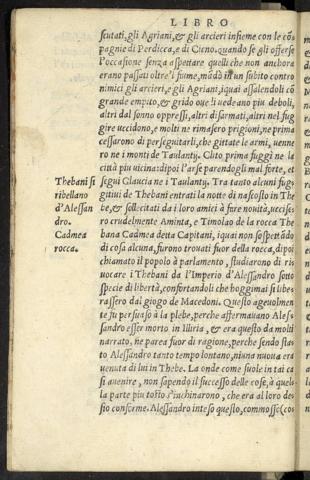 LIBRO
scutati, gli Agriani, & gli arcieri insieme con le cõ
pagnie di Perdicca, e di Cieno. quando se gli offerse
l'occasione senza aspettare quelli che non anchora
erano passati oltre'l fiume, mãdò in un subito contro
nimici gli arcieri, e gli Agriani, iquai assalendoli cõ
grande empito, & grido oue li uedeano piu deboli,
altri dal sonno oppressi, altri disarmati, altri nel fug
gire uccidono, e molti ne rimasero prigioni, ne prima
cessarono di perseguitarli, che gittate le armi, uenne
ro ne i monti de Taulantij. Clito prima fuggì ne la
città piu uicina: dipoi l'arse parendogli mal forte, et
Thebani si
ribellano
d'Alessan
dro.
Cadmea
rocca.
seguì Glaucia ne i Taulantij. Tra tanto alcuni fug-
gitiui de Thebani entrati la notte di nascosto in The
be, & sollicitati da i loro amici à fare nouità, uccise-
ro crudelmente Aminta, e Timolao de la rocca The
bana Cadmea detta Capitani, iquai non sospettãdo
di cosa alcuna, furono trouati fuor della rocca. dipoi
chiamato il popolo à parlamento, studiarono di ri
uocare i Thebani da l'Imperio d'Alessandro sotto
specie di libertà, confortandoli che hoggimai si libe-
rassero dal giogo de Macedoni. Questo ageuolmen
te fu persuaso à la plebe, perche affermauano Ales
sandro esser morto in Illiria, & era questo da molti
narrato, ne parea fuor di ragione, perche sendo sta-
to Alessandro tanto tempo lontano, niuna nuoua era
uenuta di lui in Thebe. La onde come suole in tai ca
si auenire, non sapendo il successo delle cose, à quel-
la parte piu tosto s'inchinarono, che era al loro de-
sio conforme. Alessandro inteso questo, commosse (co